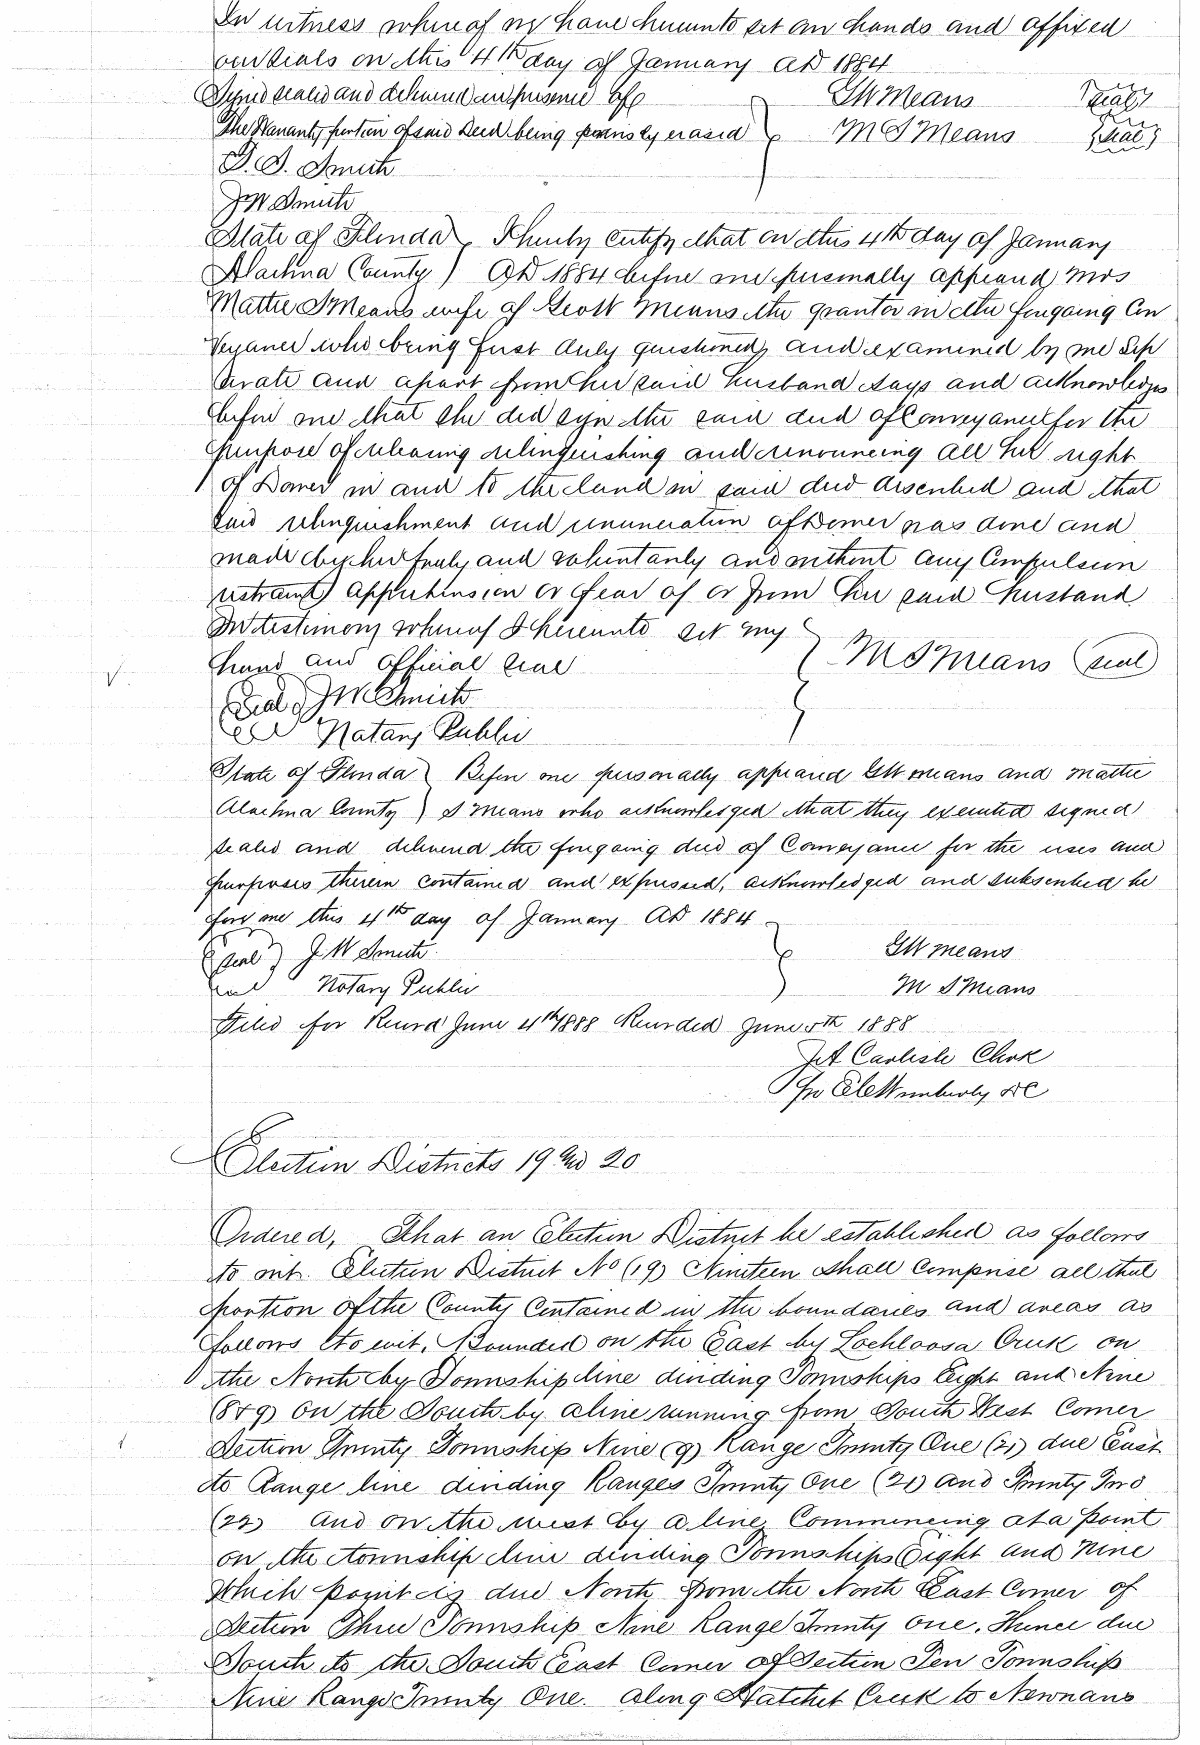 In witness whereof we have hereunto set our hands and affixed
our seals on this 4th day of January AD 1884
Signed sealed and delivered in presence of GW Means Seal
The Warranty portion of said Deed being previously erased M S Means Seal
D. D. Smith
JW Smith
State of Florida I hereby certify that on this 4th day of January
Alachua County AD 1884 before me personally appeared Mrs
Mattie S Means wife of Means the grantor in the forgoing Con
veyance who being first duly questioned, and examined by me Sep
arate and apart from her said husband says and acknowledges
before me that she did sign the said deed of Conveyance for the
purpose of releasing relinquishing and renouncing all her right
of Dower in and to the land in said deed described and that
said relinquishment and renunciation of Dower was done and
made by her freely and voluntarily and without any Compulsion
restraint apprehension or fear of or from her said husband
In testimony whereof I hereunto set my
hand and official seal M S Means (seal)
Seal JW Smith
Notary Public
State of Florida Before me personally appeared GW Means and Mattie
Alachua County S Means who acknowledged that they executed signed
sealed and delivered the forgoing deed of Conveyance for the uses and
purposes therein contained and expressed, acknowledged and subscribed be
fore me this 4th day of January AD 1884
seal J W Smith GW Means
Notary Public M S Means
Filed for Record June 4th 1888 Recorded June 5th 1888
JA Carlisle Clerk
Per Wimberly DC
Election Districts 19 and 20
Ordered, That an Election District be established as follows
to wit. Election District No (19) Nineteen shall comprise all that
portion of the County Contained in the boundaries and areas as
follows to wit, Bounded on the East by Lochloosa Creek on
the North by Township line dividing Townships Eight and Nine
(8 & 9) on the South by a line running from South West Corner
Section Twenty Township Nine (9) Range Twenty One (21) due East
to Range line dividing Ranges Twenty One (21) and Twenty Two
(22) and on the west by a line Commencing at a point
on the township line dividing Townships Eight and Nine
which point is due North from the North East Corner of
Section Three Township Nine Range Twenty One. Thence due
South to the South East Corner of Section Ten Township
Nine Range Twenty One. Along Hatchet Creek to Newnans